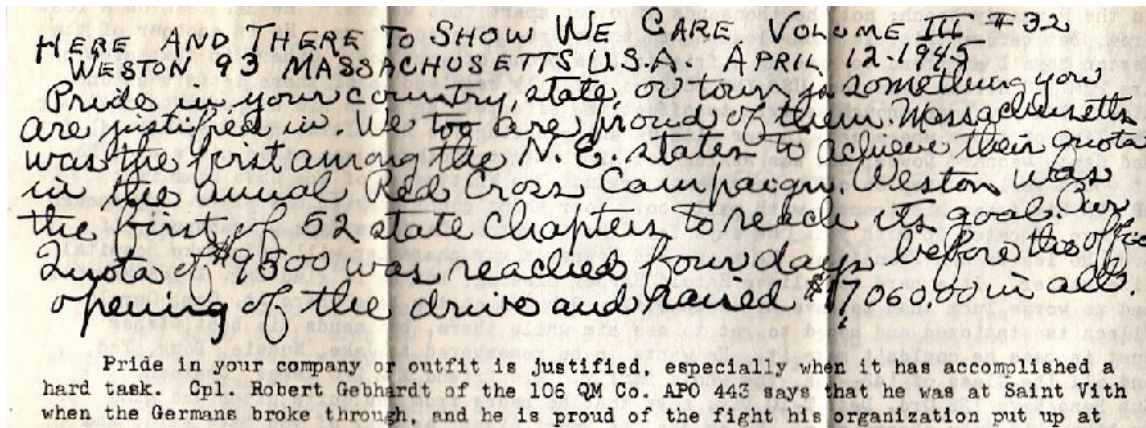 HERE AND THERE TO SHOW WE CARE VOLUME III #32
WESTON 93 MASSACHUSETTS U.S.A. APRIL 12-1945
Pride in your country, state, or town is something you
are justified in. We too are proud of them. Massachusetts
was the first among the N.E. states to achieve their quota
in the annual Red Cross Campaign. Weston was
the first of 52 state Chapters to reach its goal. Our
Quota of $9500 was reached four days before the official
opening of the drive and raised $17,060.00 in all.
Pride in your company or outfit is justified, especially when it has accomplished a
hard task. Cpl. Robert Gebhardt of the 106 QM Co. APO 443 says that he was at Saint Vith
when the Germans broke through, and he is proud of the fight his organization put up at